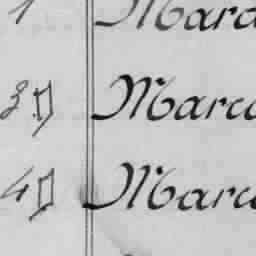 1 Marc
3. Marc
4 Marc